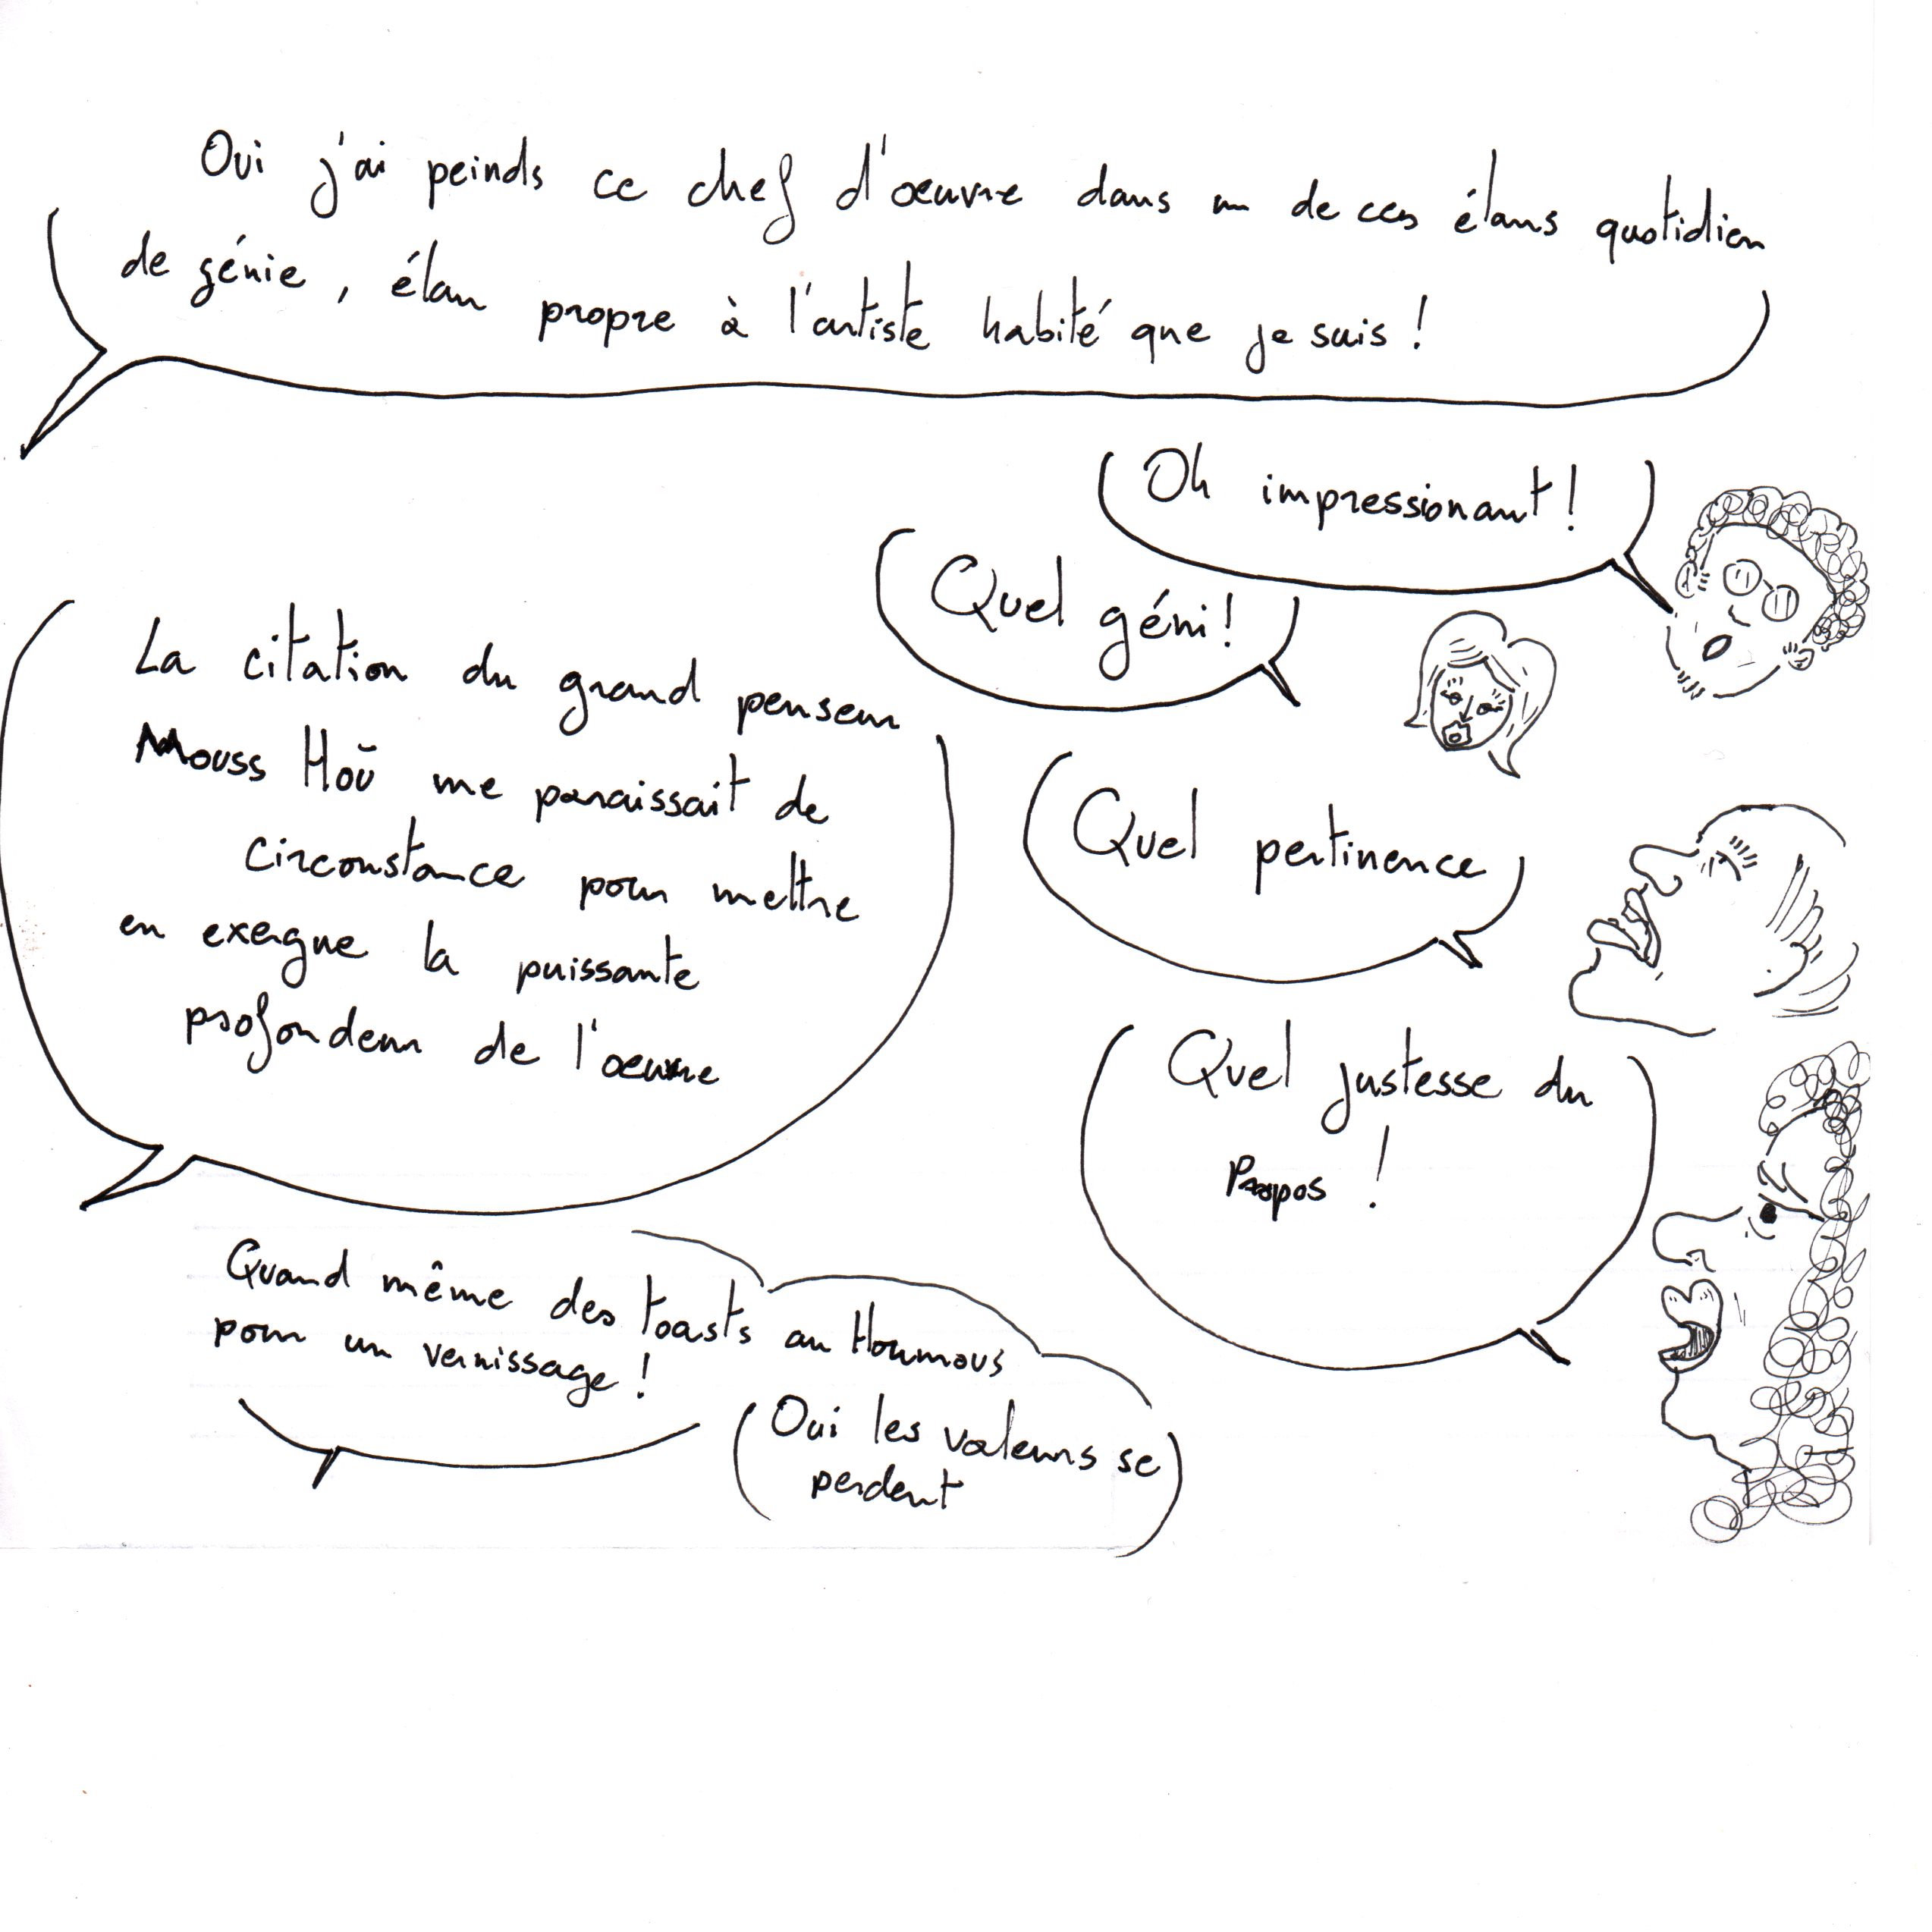 Oui j'ai peinds ce chef d'œuvre dans un de ces élans quotidien
de génie, élan propre à l'artiste habité que je suis !
Oh impressionant !
Quel géni !
La citation du grand penseur
Mouss Hoŭ me paraissait de
circonstance pour mettre
en exergue la puissante
profondeur de l'œuvre
Quel pertinence
Quel justesse du
Propos !
Quand même des toasts au Houmous
pour un vernissage !
Oui les valeurs se
perdent